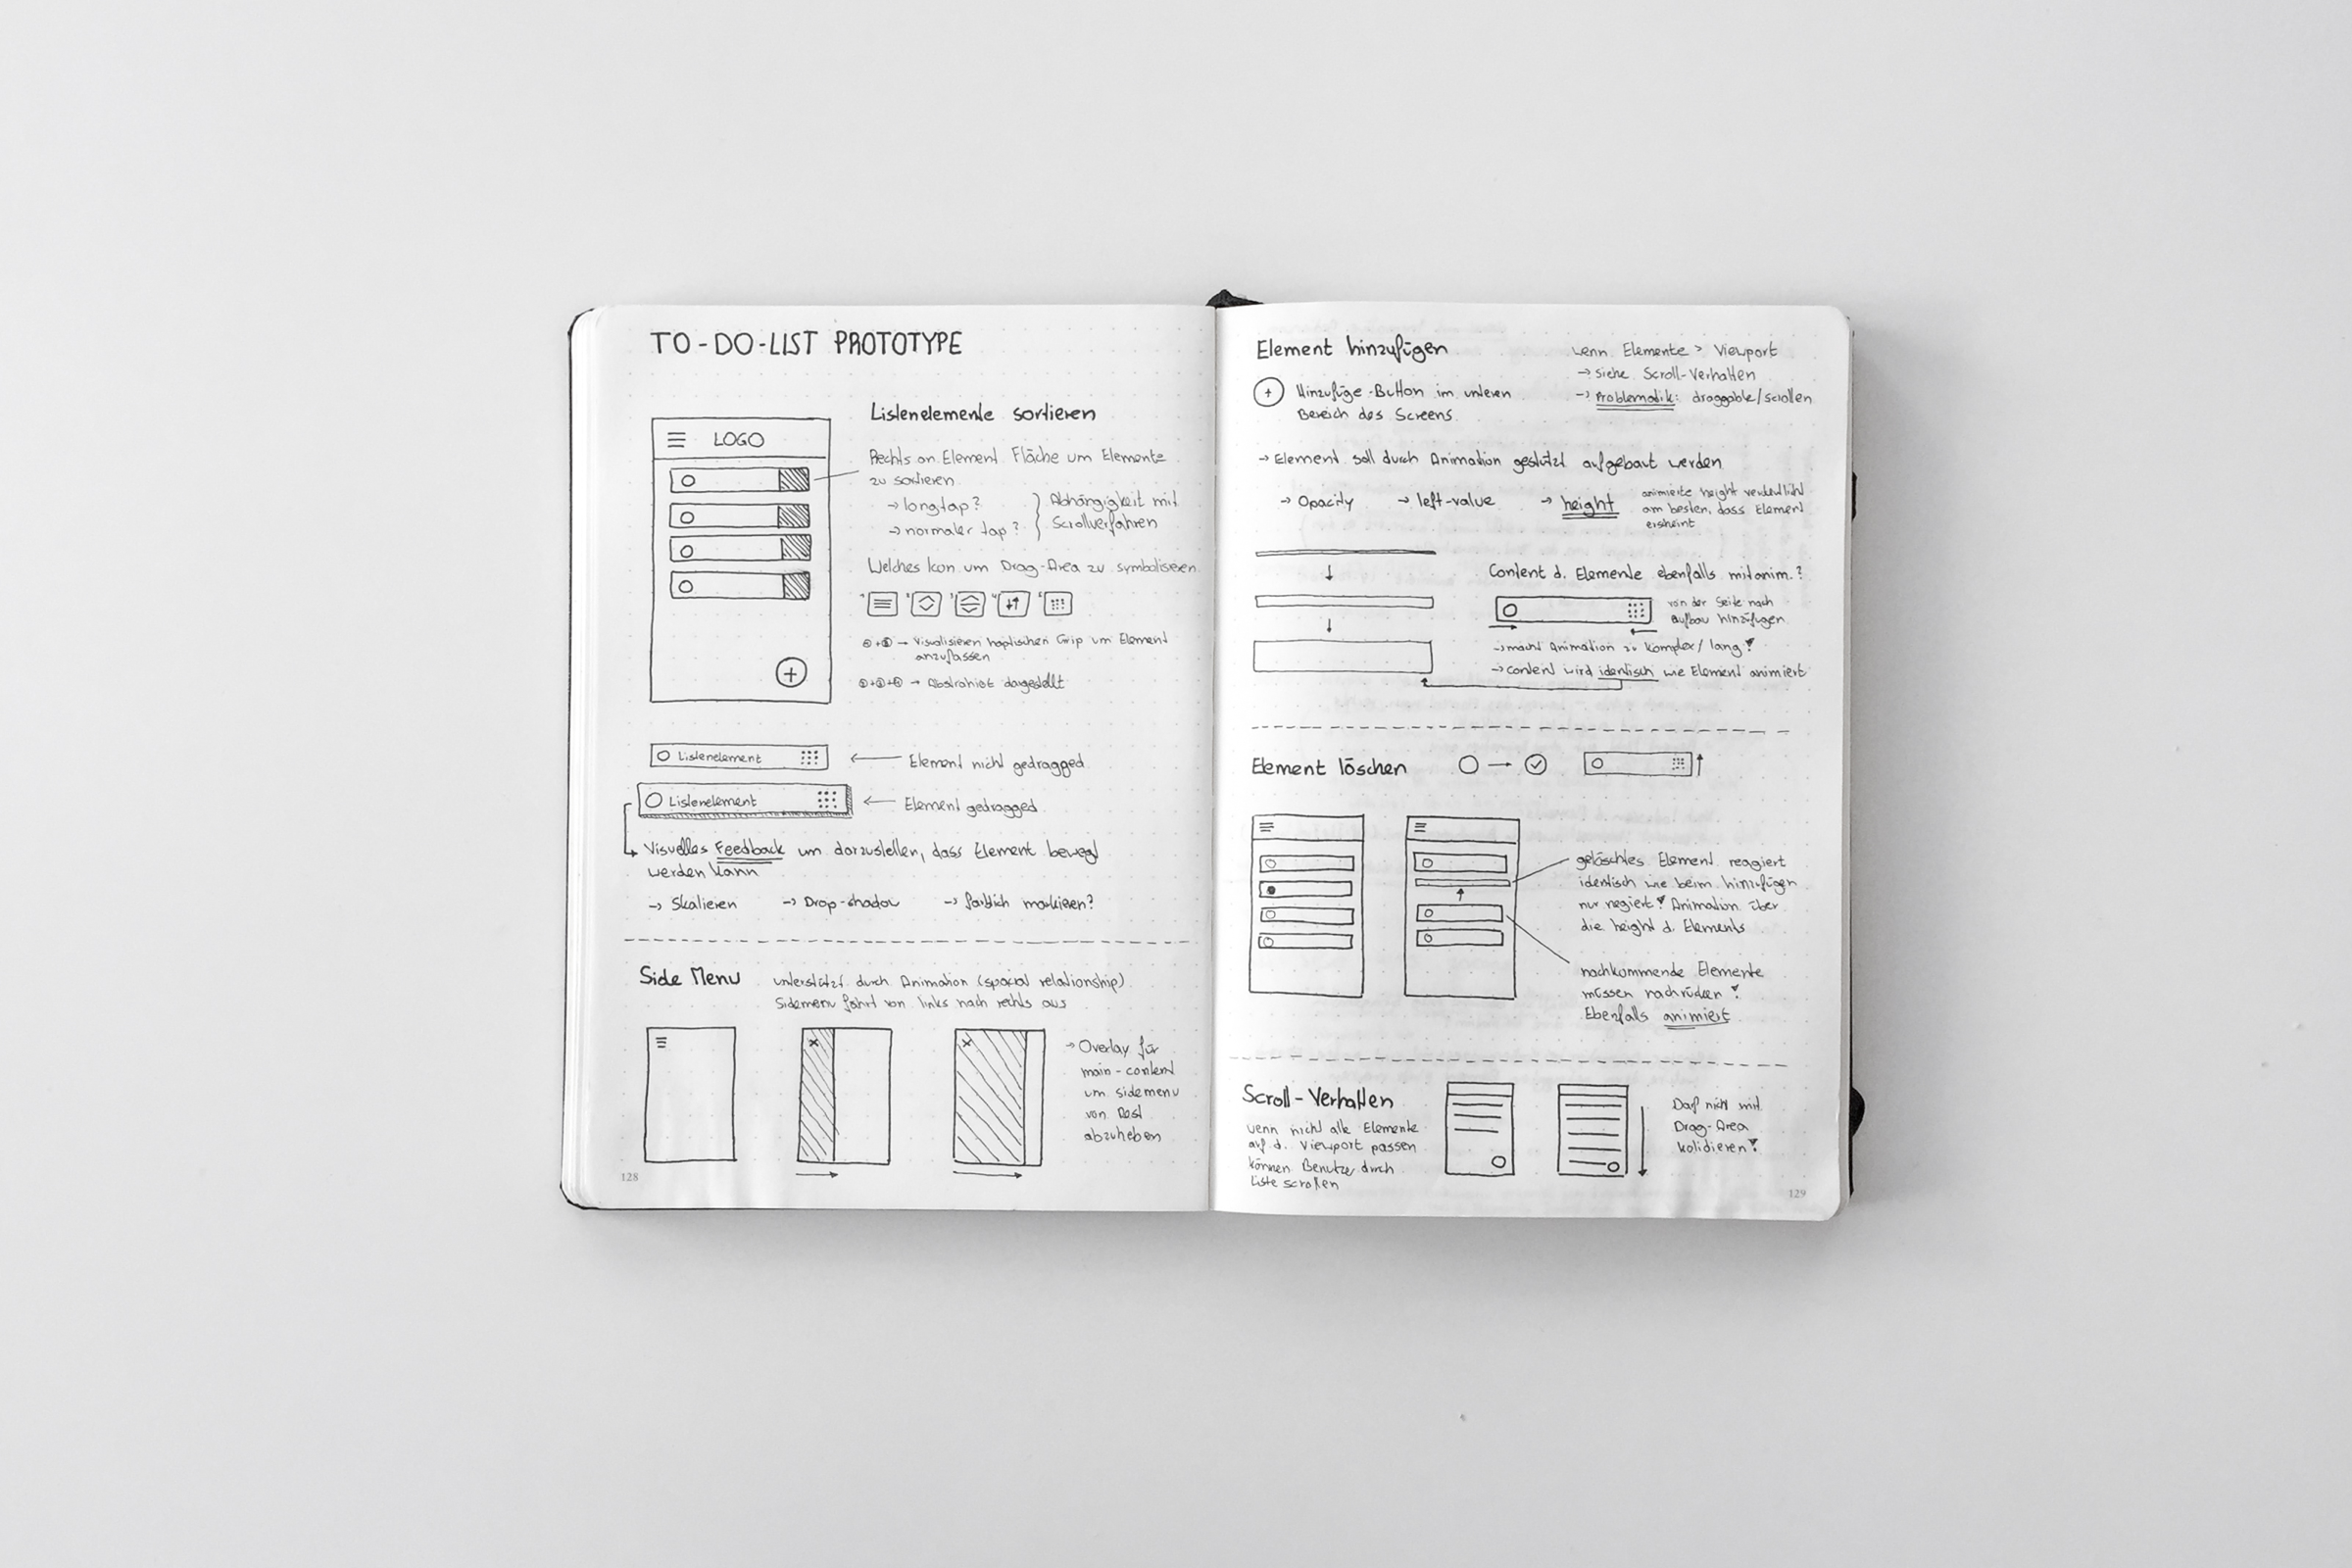 TO-DO-LIST PROTOTYPE
LOGO
Listenelemente sortieren
Rechts an Element Fläche um Elemente
zu sortieren
→ longtap?
→ normaler tap?
Abhängigkeit mit
Scrollverfahren
Welches Icon um Drag-Area zu symbolisieren
→ Visualisieren haptischen Grip um Element
anzufassen
→ Abstrahiert dargestellt
Listenelement
← Element nicht gedragged
Listenelement
← Element gedragged
Visuelles Feedback um darzustellen, dass Element bewegt
werden kann
→ Skalieren → Drop-shadow → farblich markieren?
Side Menu
unterstützt durch Animation (spacial relationship)
Sidemenu fährt von links nach rechts aus
→ Overlay für
main-content
um sidemenu
von Rest
abzuheben
128
Element hinzufügen
+ Hinzufüge-Button im unteren
Bereich des Screens
wenn Elemente > Viewport
→ siehe Scroll-Verhalten
→ Problematik: draggable/scrollen
→ Element soll durch Animation gestützt aufgebaut werden
→ Opacity → left-value → height
animierte height verdeutlicht
am besten, dass Element
erscheint
Content d. Elemente ebenfalls mitanim.?
von der Seite nach
aufbau hinzufügen
→ macht Animation zu komplex/lang!
→ content wird identisch wie Element animiert
Element löschen
gelöschtes Element reagiert
identisch wie beim hinzufügen
nur negiert! Animation über
die height d. Elements
nachkommende Elemente
müssen nachrücken!
Ebenfalls animiert
Scroll-Verhalten
wenn nicht alle Elemente
auf d. Viewport passen
können Benutzer durch
Liste scrollen
Darf nicht mit
Drag-Area
kolidieren!
129